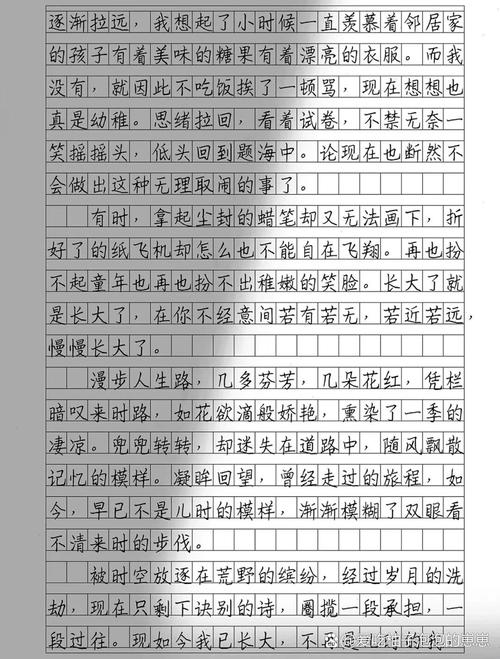 逐渐拉远，我想起了小时候一直羡慕着邻居家
的孩子有着美味的糖果有着漂亮的衣服。而我
没有，就因此不吃饭挨了一顿骂，现在想想也
真是幼稚。思绪拉回，看着试卷，不禁无奈一
笑摇摇头，低头回到题海中。论现在也断然不
会做出这种无理取闹的事了。
有时，拿起尘封的蜡笔却又无法画下，折
好了的纸飞机却怎么也不能自在飞翔。再也扮
不起童年也再也扮不出稚嫩的笑脸。长大了就
是长大了，在你不经意间若有若无，若近若远，
慢慢长大了。
漫步人生路，几多芬芳，几朵花红，凭栏
暗叹来时路，如花欲滴般娇艳，熏染了一季的
凄凉。兜兜转转，却迷失在道路中，随风飘散
记忆的模样。凝眸回望，曾经走过的旅程，如
今，早已不是儿时的模样，渐渐模糊了双眼看
不清来时的步伐。
被时空放逐在荒野的缤纷，经过岁月的洗
劫，现在只剩下诀别的诗，圈揽一段承担，一
段过往。现如今我已长大，不再是从前的我，
爱吃柚子包泡的崽崽